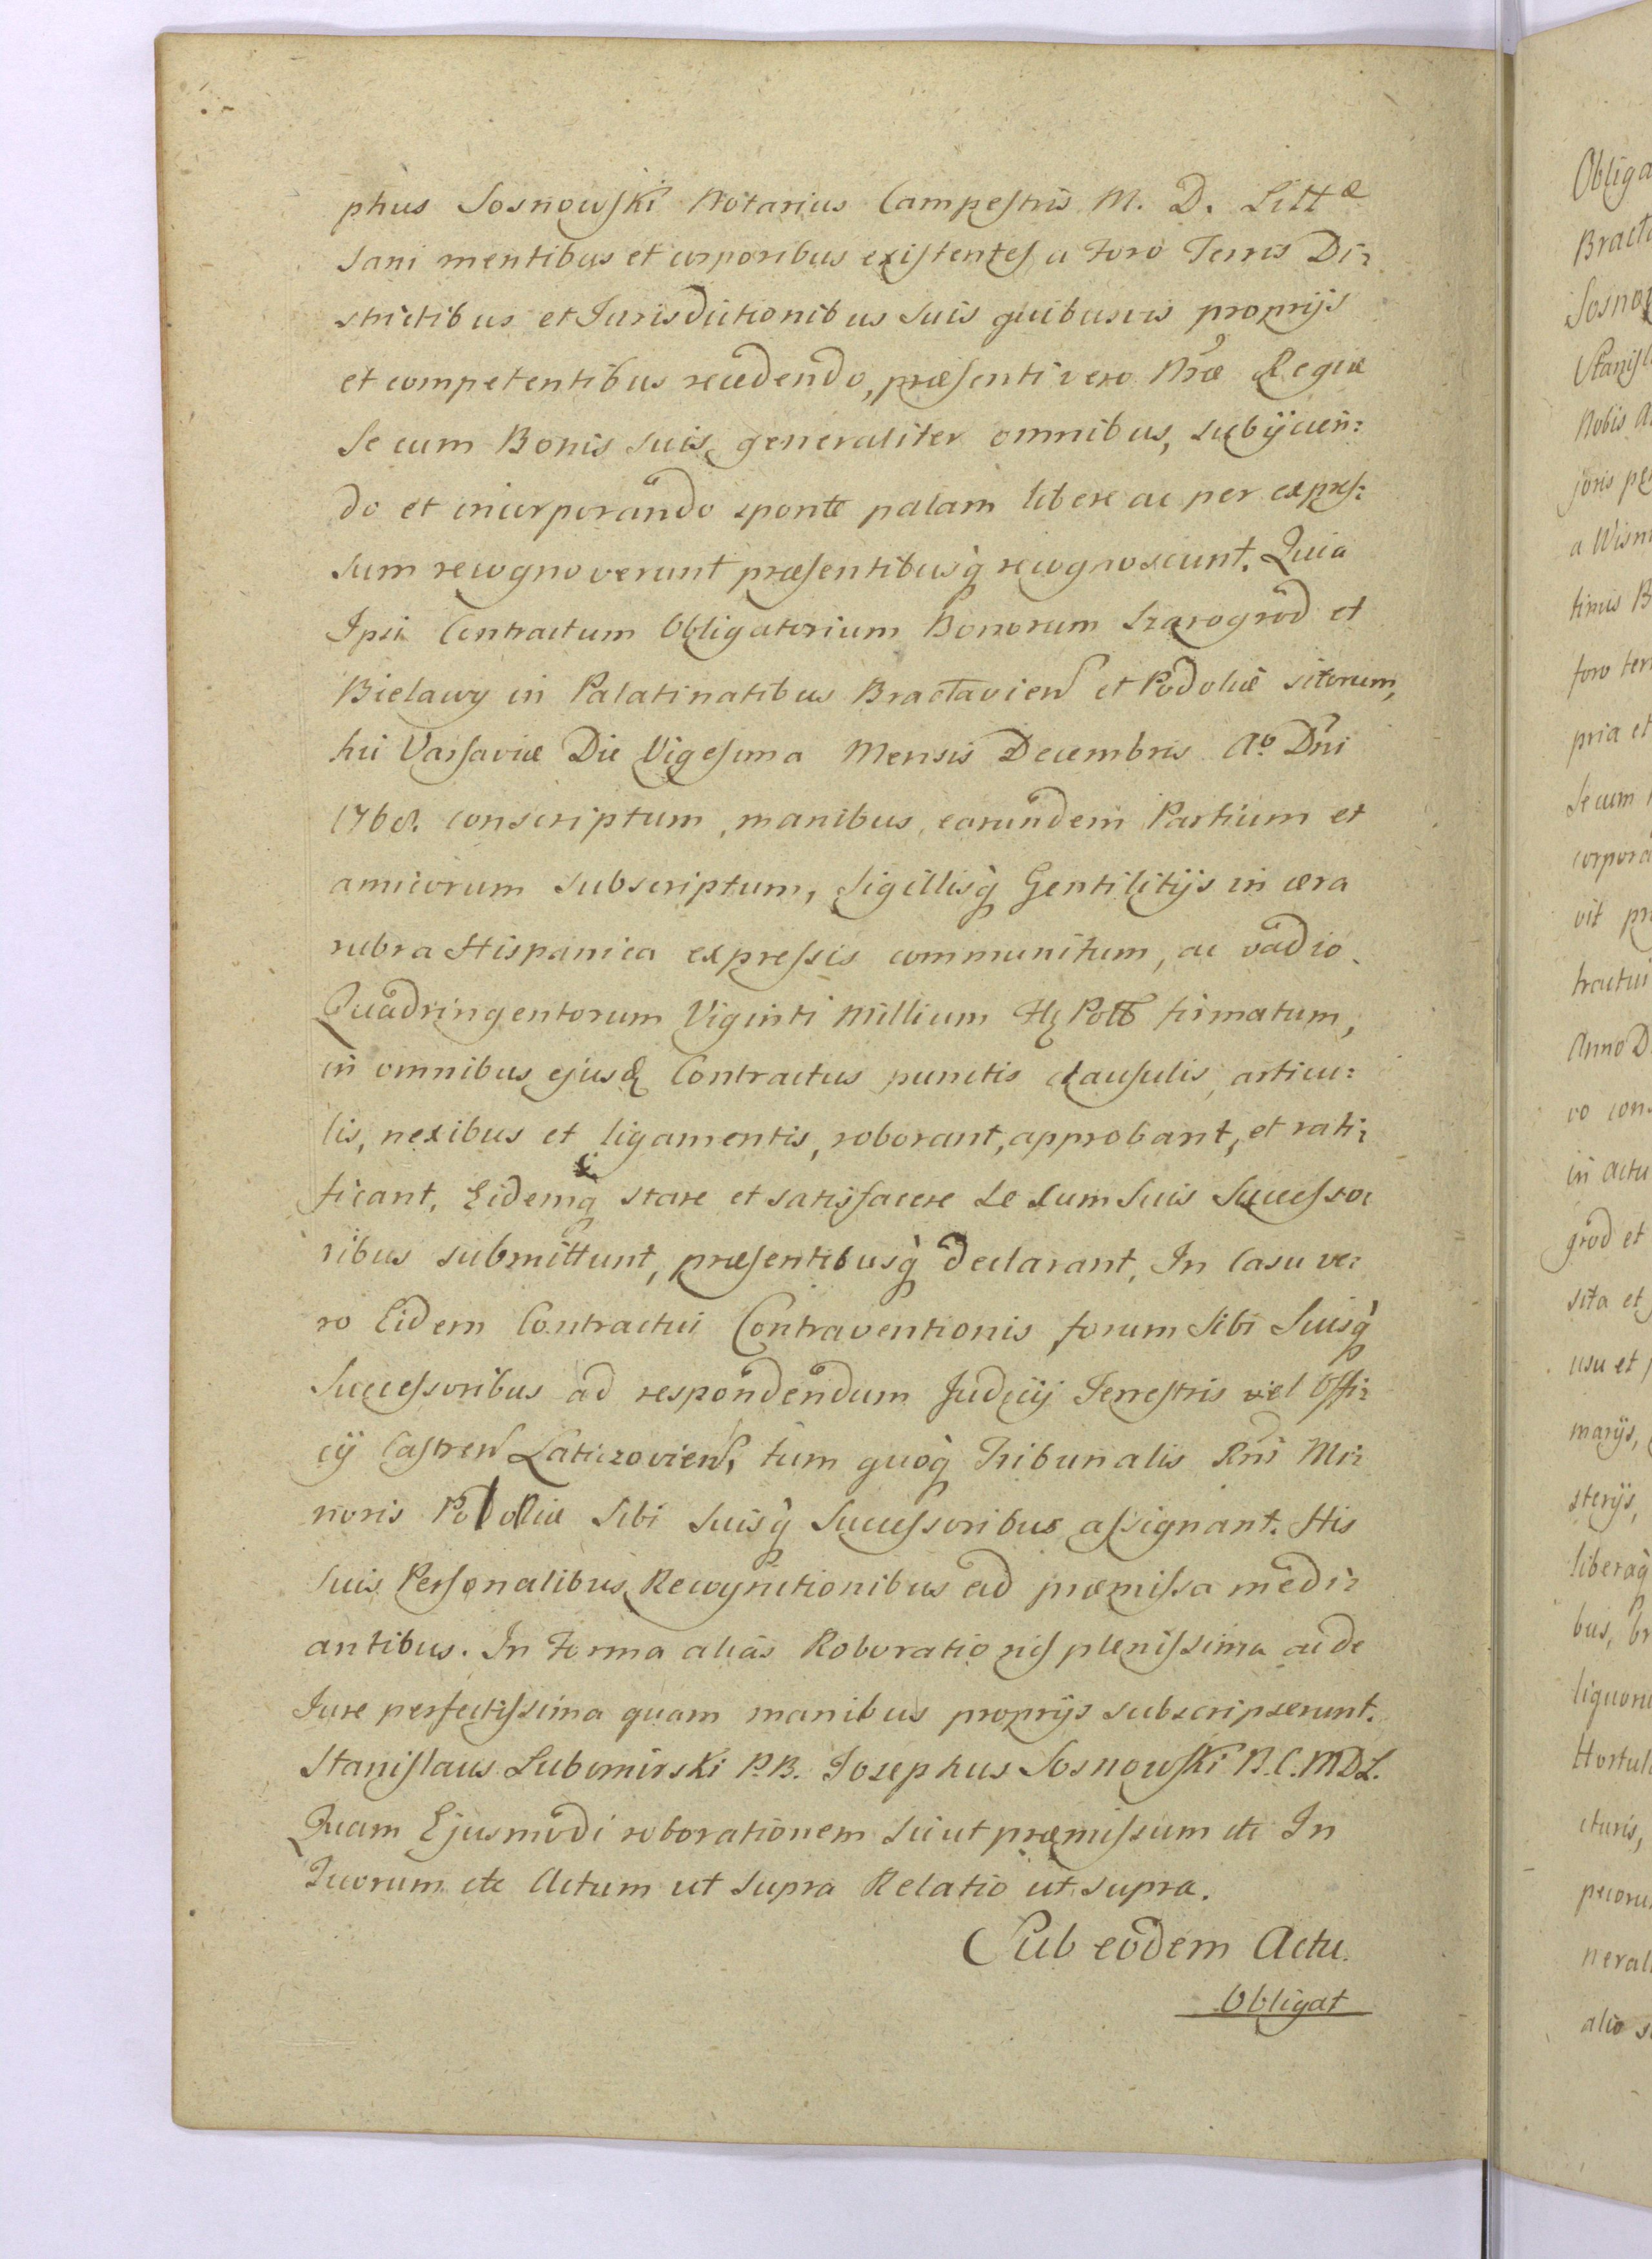 phus Sosnowski Notarius Campestris M. D. Littæ
sani mentibus et corporibus existentes a Foro Terris Di:
strictibus et Jurisdictionibus suis quibusvis proprijs
et competentibus recedendo, præsenti vero Nræ Regiæ
Se cum Bonis suis generaliter omnibus, subijcien:
do et incorporando sponte palam libere ac per expres:
sum recognoverunt præsentibusq̀ recognoscunt. Quia
Ipsi Contractum Obligatorium Bonorum Szarogrod et
Bielawy in Palatinatibus Braclavien et Podoliæ sitorum,
hic Varsaviæ Die Vigesima Mensis Decembris Ao Dni
1768. conscriptum, manibus, earundem Partium et
amicorum subscriptum, Sigillisq̀ Gentilitijs in cera
rubra Hispanica expressis communitum, ac vadio
Quadringentorum Viginti Millium Flz Poll firmatum,
in omnibus ejusd Contractus punctis clausulis, articu:
lis, nexibus et ligamentis, roborant, approbant, et rati:
ficant, Eidemq stare et satisfacere Se cum Suis Successo:
ribus submittunt, præsentibusq̀ declarant, In Casu ve:
ro Eidem Contractui Contraventionis forum Sibi Suisq̀
Successoribus ad respondendum Judicij Terrestris vel Offi:
cij Castren Laticzovien, tum quoq̀ Tribunalis Rni Mi:
noris Poloniæ Sibi Suisq̀ Successoribus assignant. His
Suis Personalibus Recognitionibus ad præmissa medi:
antibus. In Forma alias Roborationis plenissima ac de
Jure perfectissima quam manibus proprijs subscripserunt.
Stanislaus Lubomirski P.B. Josephus Sosnowski N.C.MDL.
Quam Ejusmodi roborationem sicut præmissum etc In
Quorum etc Actum ut supra Relatio ut supra.
Sub eodem Actu.
Obligat